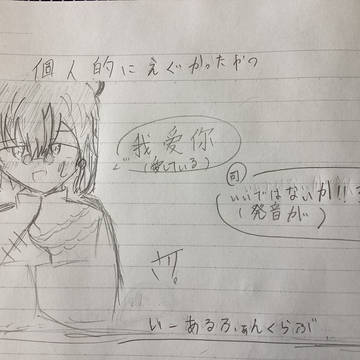 個人的にえぐかったやつ
我愛你
(愛している)
司
いいではないか!!
(発音が)
いーあるふぁんくらぶ